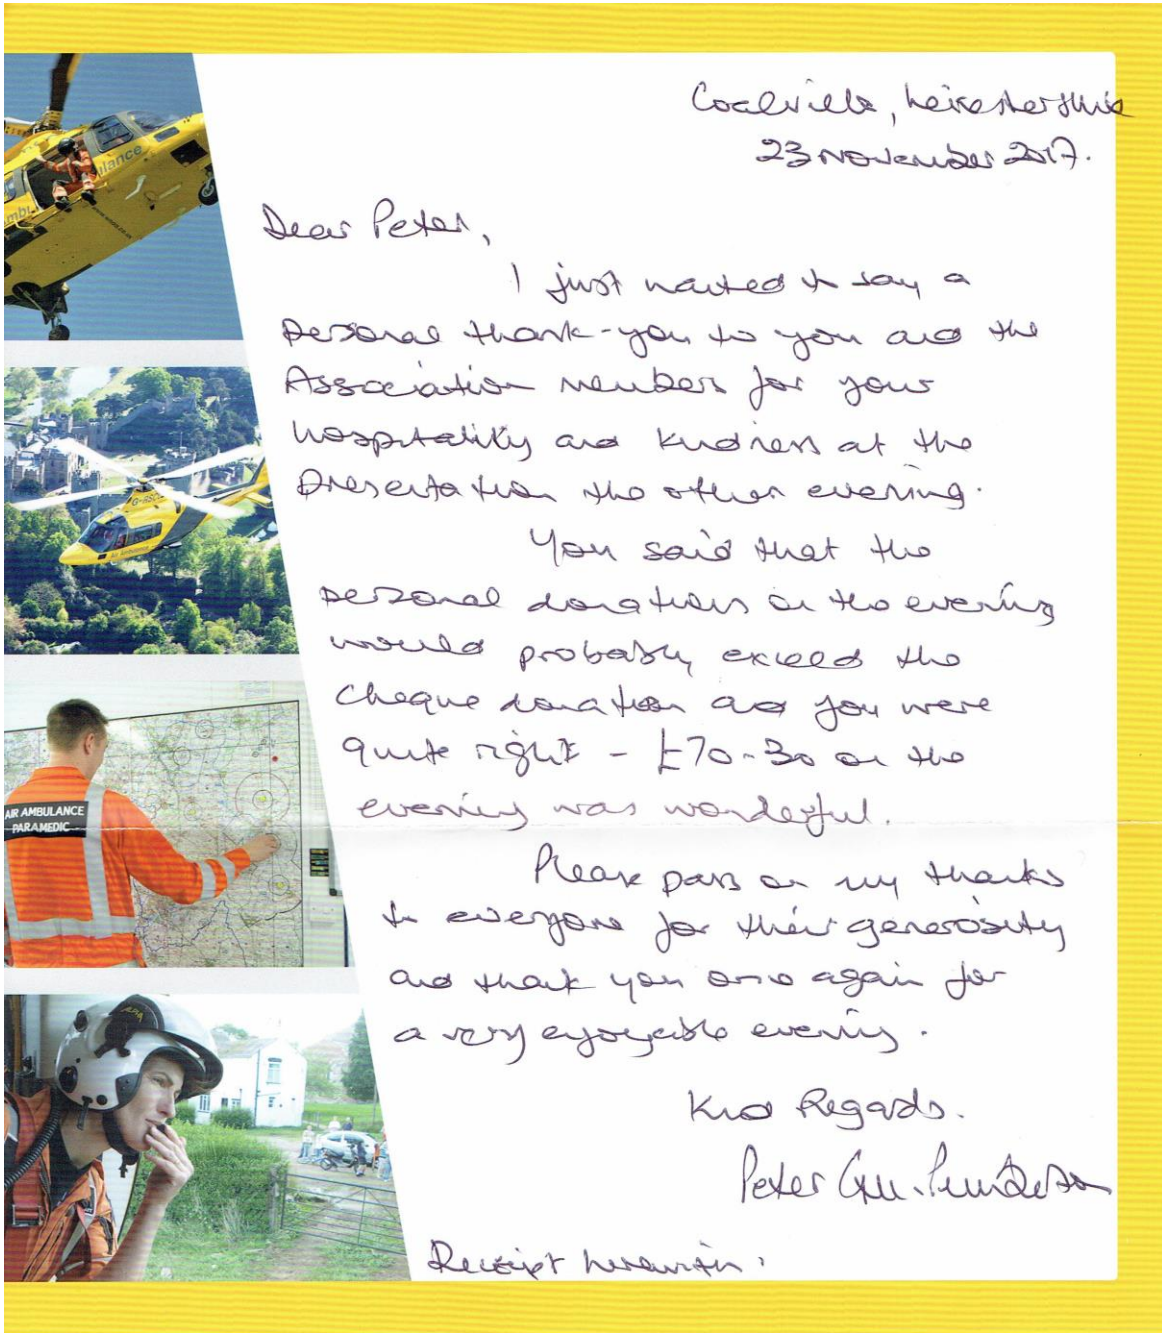 Coalville, Leicestershire
23 November 2017.
Dear Peter,
I just wanted to say a
personal thank-you to you and the
Association members for your
hospitality and kindness at the
presentation the other evening.
You said that the
personal donations on the evening
would probably exceed the
cheque donation and you were
quite right - £70-30 on the
evening was wonderful.
Please pass on my thanks
to everyone for their generosity
and thank you once again for
a very enjoyable evening.
Kind Regards.
Peter
Receipt herewith.
ambulance
G-RSCU
Air Ambulance
AIR AMBULANCE
PARAMEDIC